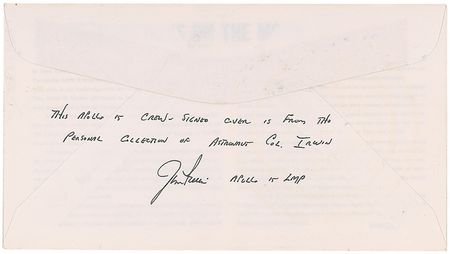 THIS APOLLO 15 CREW-SIGNED COVER IS FROM THE
PERSONAL COLLECTION OF ASTRONAUT COL. IRWIN
Jim Irwin APOLLO 15 LMP